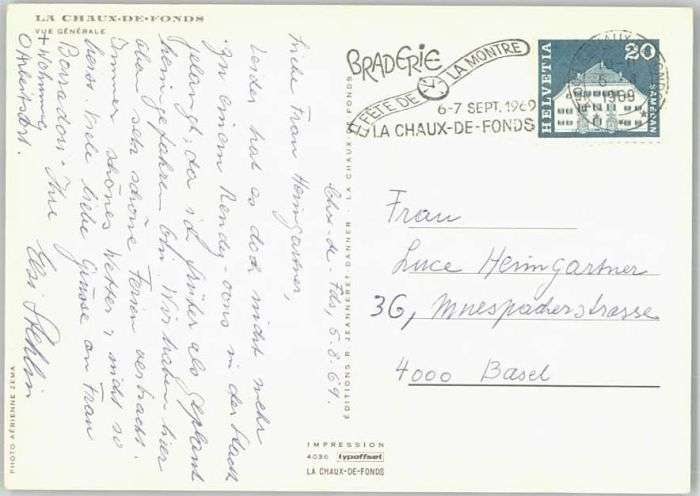 LA CHAUX-DE-FONDS
VUE GÉNÉRALE
Chx-de-Fds, 5.8.69.
Liebe Frau Heimgartner,
Leider hat es doch nicht mehr
zu einem Rendez-vous in der Stadt
gelangt, da ich früher als geplant
heimgefahren bin. Wir haben hier
oben sehr schöne Ferien verbracht.
Immer schönes Wetter & nicht so
heiss. Viele liebe Grüsse an Frau
Ihre
+ Wohnung
Elsi Stehlin
PHOTO AÉRIENNE ZEMA
ÉDITIONS R. JEANNERET DANNER - LA CHAUX-DE-FONDS
IMPRESSION
4036 typoffset
LA CHAUX-DE-FONDS
BRADERIE
FÊTE DE LA MONTRE
6-7 SEPT. 1969
LA CHAUX-DE-FONDS
HELVETIA
20
SAMEDAN
1969
Frau
Luce Heimgartner
36, Muespacherstrasse
4000 Basel